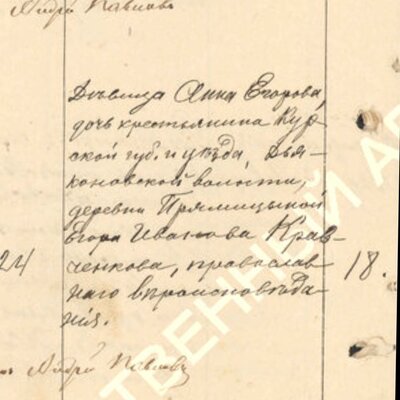 Андрей Павловъ
Дѣвица Анна Егорова,
дочь крестьянина Кур-
ской губ. и уѣзда, Дья-
коновской волости,
деревни Прямицыной
Егора Иванова Крав-
24 ченкова, православ- 18.
наго вѣроисповѣда-
нія.
Андрей Павловъ